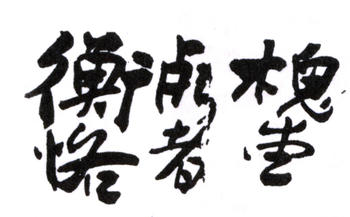 槐堂
朽者
衡恪